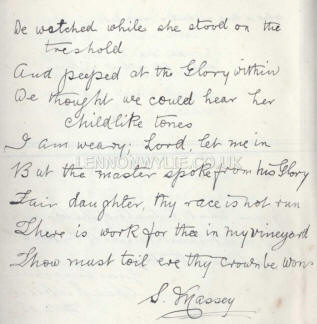 We watched while she stood on the
treshold
And peeped at the Glory within
We thought we could hear her
childlike tones
I am weary; Lord, let me in
LENNONWYLIE.CO.UK
But the master spoke from his Glory
Fair daughter, thy race is not run
There is work for thee in my vineyard
Thow must toil ere thy crown be won
S. Massey